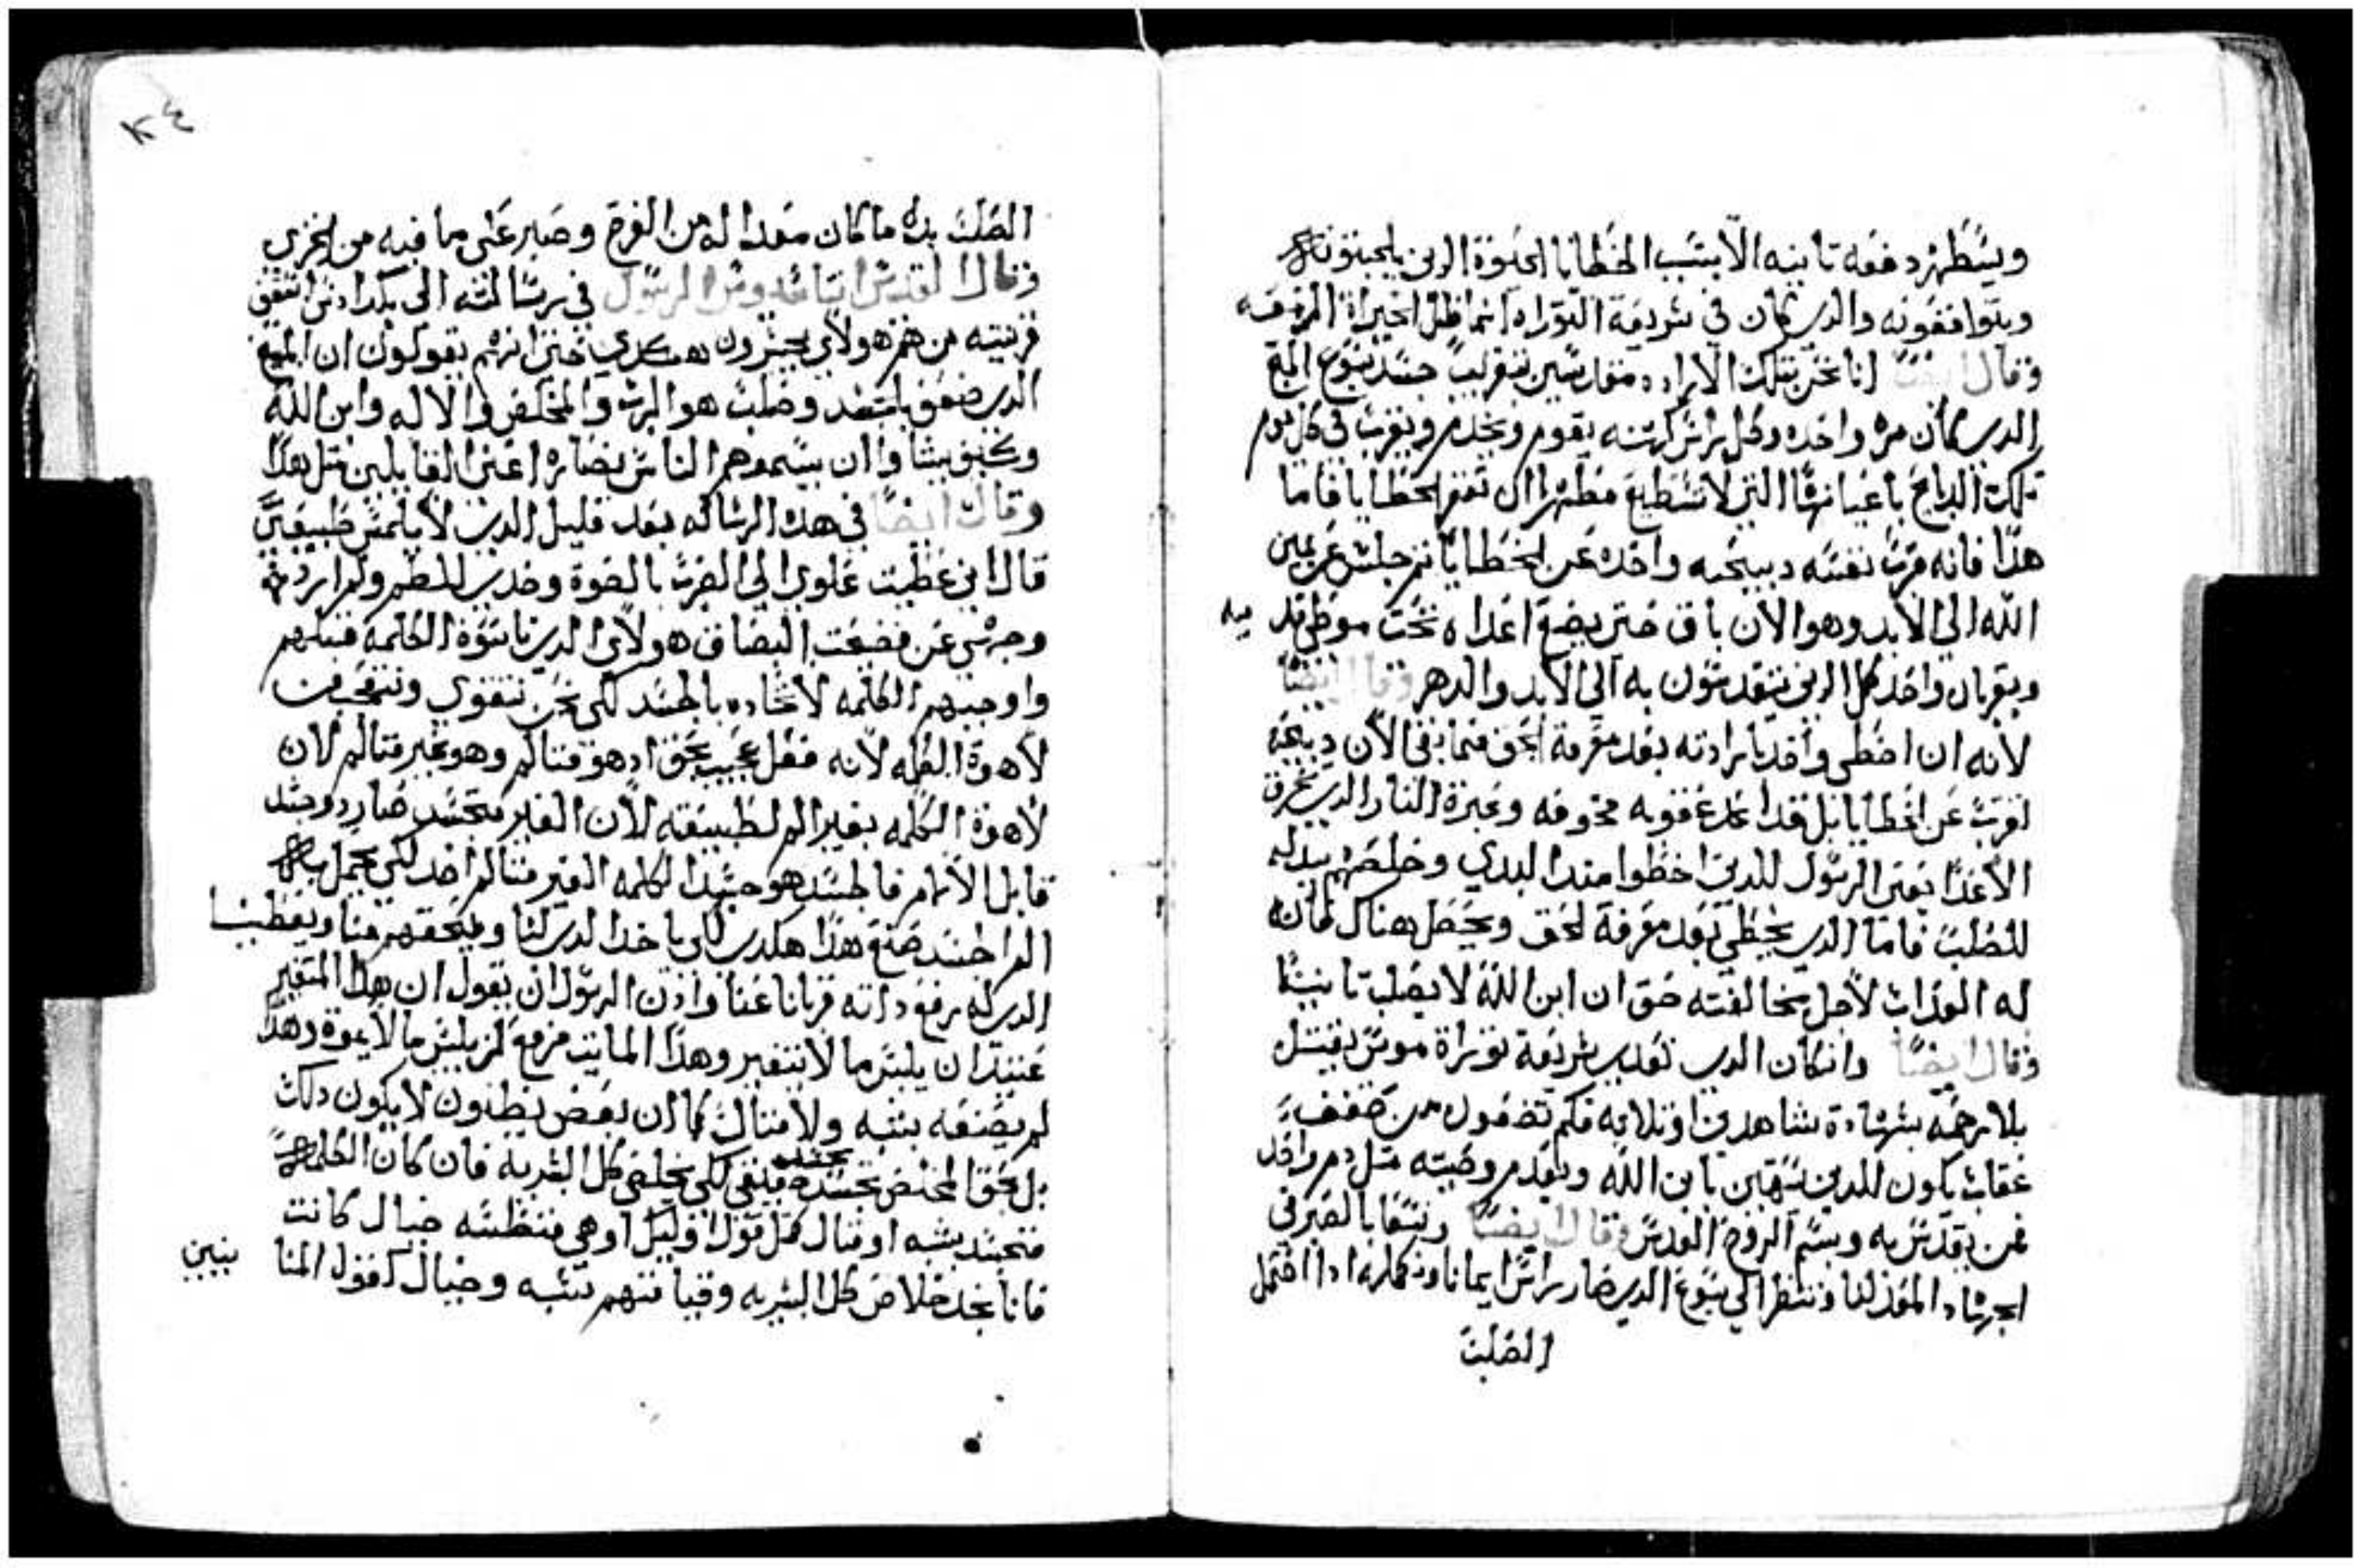 ويسطهر دفعه تانيه الا بسبب الخطايا الحلوة الدين يحبونه
ويتوافقونه والدي كان في شريعة التوراه انما ظل الخيراة المزمعه
وقال ايضا انا نحن بتلك الاراده مقدسين بتقريب جسد يسوع المسيح
الدي كان مره واحده وكل رايس كهنه يقوم ويخدم ويقرب في كل يوم
تلك الدبايح باعيانها التي لا تسطيع مطهرا ان تغفر الخطايا فاما
هدا فانه قرب نفسه دبيحه واحده عن الخطايا ثم جلس عن يمين
الله الي الابد وهو الان باق حتي يضع اعداه تحت موطي قد ميه
وبقربان واحد كل الدين يتقدسون به الي الابد والدهر وقال ايضا
لانه ان اخطى واحد بارادته بعد معرفة الحق فما بقى الان دبيحه
تقرب عن الخطايا بل قد اعد عقوبه مخوفه وغيرة النار الدي تحرق
الاعدا يعني الرسول للدين اخطوا مند البدي وخلصهم بدله
للصلب فاما الدي يخطي بعد معرفة الحق ويحصل هناك فانه
له العداب لاجل مخالفته حق ان ابن الله لا يصلب تانيتا
وقال ايضا وان كان الدي تعدي شريعة توراة موسى يقتل
بلا رحمه بشهادة شاهدين او تلاته فكم تضعون من ضعف
عقاب يكون للدين يستهين بابن الله وبقدم وصيته مثل دم واحد
ممن يقدس به ويشتم الروح القدس وقال ايضا ونسعا بالصبر في
الجهاد المعد لنا وننظر الي يسوع الدي صار راس ايماننا وكماله ادا احتمل
الصلب
الصلب بدل ما كان معدا له من الفرح وصبر على ما فيه من الخزي
وقال القديس اتناسيوس الرسول في رسالته الى
قربيته من هم هولاي يجسرون هكدي حتى انهم يقولون ان المسيح
الدي صعق بالجسد وصلب هو الرب والمخلص والاله وابن الله
وكيف يشاوا ان يسموهم الناس نصاره اعني القايلين متل هدا
وقال ايضا في هده الرساله بعد قليل الدي لا يلمس طبيعتي
قال اني عطيت ظهري الي الضرب بالقوة وخدي للطم ولم ارد
وجهي عن فضيحت البصاق هولاي الدين ناسوة الكلمه قبلهم
واوجبهم الكلمه لاتحاده بالجسد لكي نحن نتقوي ونتمجد من
لاهوة الكلمه لانه فعل عجيب بحق ادهو متالم وهو غير متالم لان
لاهوة الكلمه بغير الم لطبيعته لان الغير متجسد صار دو جسد
قابل الالام فالجسد هو جسد الكلمه الغير متالم اخد لكي يحمل
الم الجسد صنع هدا هكدي لكي ياخد الدي لنا ويلحقهم منا ويعطينا
الدي له برفع داته قربانا عنا وادن الرسول ان يقول ان هدا المتغير
عتيد ان يلبس ما لا يتغير وهدا المايت مزمع ان يلبس ما لا يموت وهدا
لم يصنعه بشبه ولا متال كما ان بعض يظنون لا يكون دلك
بل بحق المخلص تجسده تبقى لكي يخلص كل البشريه فان كان الكلمه
متجسد بشبه او متال كمل قول اوليك اوهي منتظشه خيال كانت
فانا نجد خلاص كل البشريه وقيامتهم تشبه وخيال كقول المنا نيين